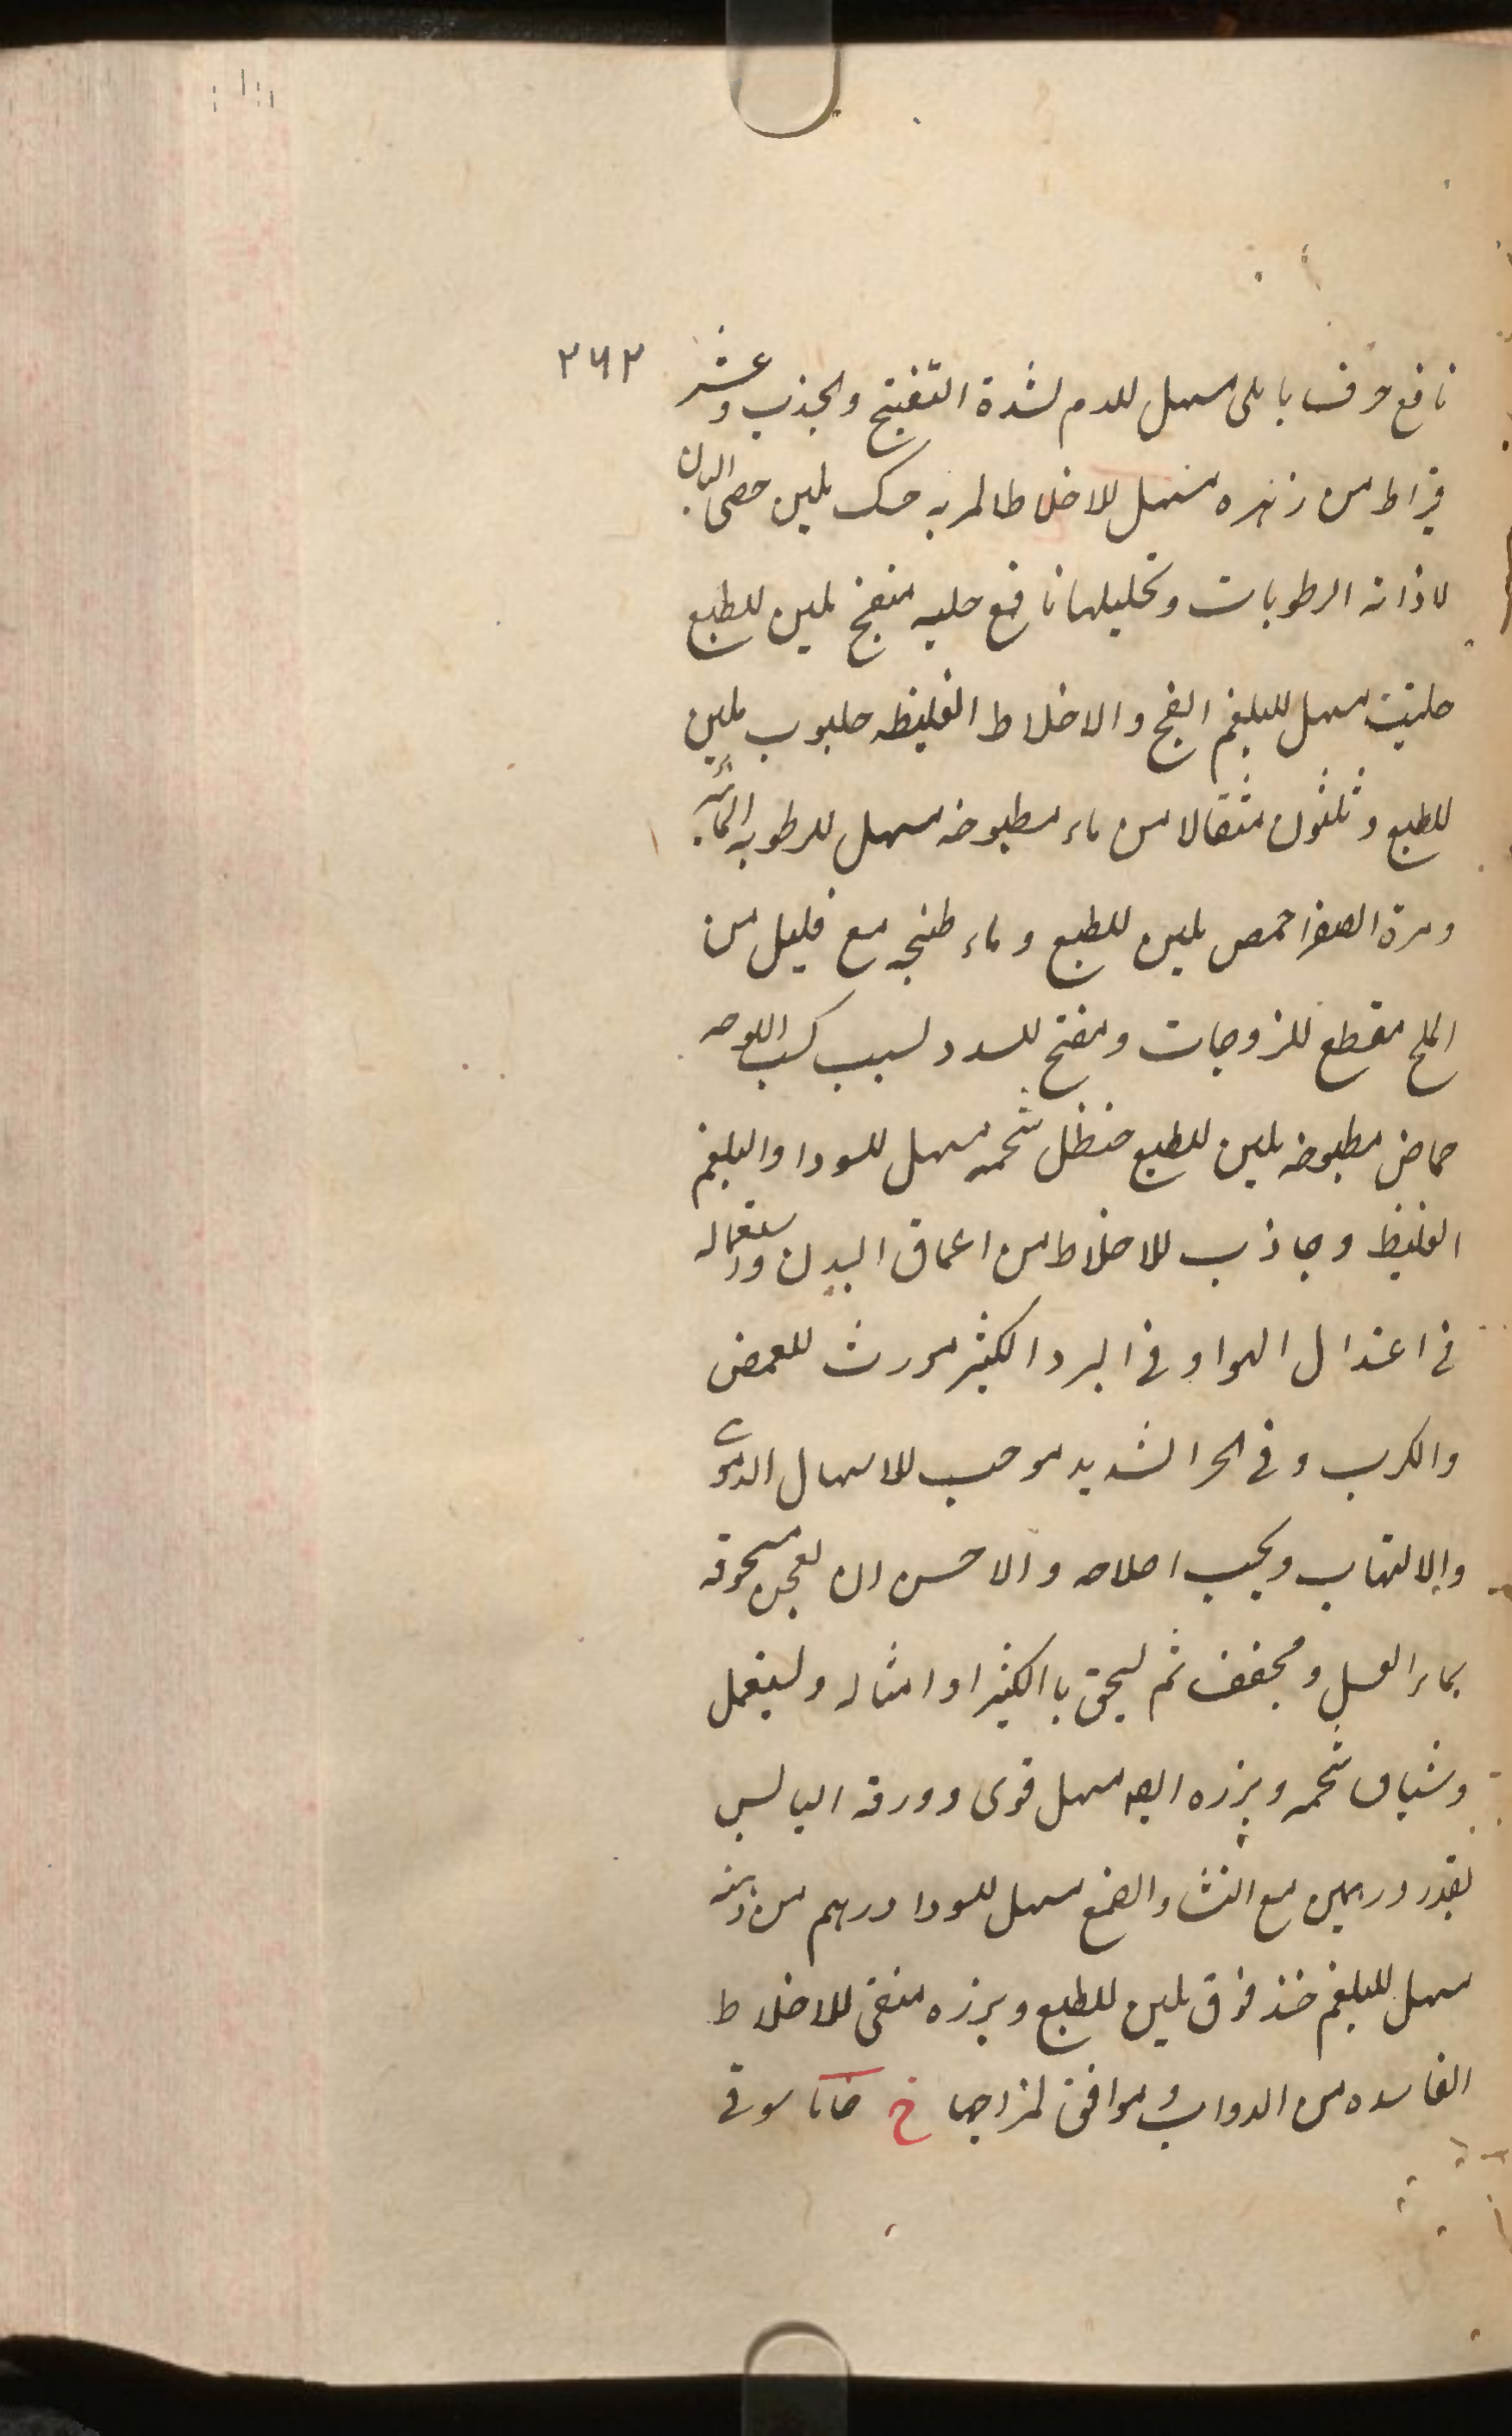 ٢٦٢
نافع حرف بابلى مسهل للدم لشدة التفتيح والجذب وعشر
قيراط من زهره مسهل للاخلاط المريه حسك ملين حصى البان
لاذابه الرطوبات وتحليلها نافع حلبه منضج ملين للطبع
حلتيت مسهل للبلغم الفج والاخلاط الغليظه حلبوب ملين
للطبع وثلثون مثقالا من ماء مطبوخه مسهل للرطوبه المائيه
ومرة الصفرا حمص ملين للطبع وماء طبخه مع قليل من
الملح مقطع للزوجات ومفتح للسدد لسبب كسب اللوحه
حماض مطبوخه ملين للطبع حنظل شحمه مسهل للسودا والبلغم
الغليظ وجاذب للاخلاط من اعماق البدن واستعماله
فى اعتدال الهوا وفى البرد الكثير مورث للمغص
والكرب وفى الحر الشديد موجب للاسهال الدموى
والالتهاب ويجب اصلاحه والاحسن ان يعجن مسحوقه
بماء العسل ومجفف ثم ليسحق باالكثيرا وامثاله وليستعمل
وشياف شحمه وبزره ايضا مسهل قوى وورقه اليابس
بقدر درهمين مع النشا والصمغ مسهل للسودا درهم من دهنه
مسهل للبلغم خندقوق ملين للطبع وبزره منقى للاخلاط
الفاسده من الدواب وموافق لمزاجها خ خاماسوقى